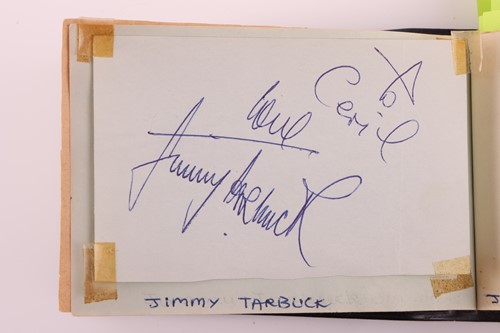 To
Cecil
love
Jimmy Tarbuck
JIMMY TARBUCK
J